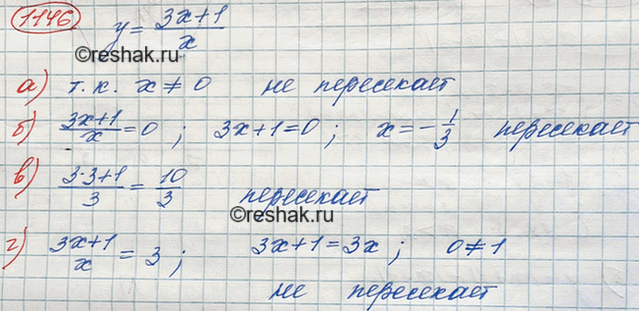 1146 y = 3x+1/x
©reshak.ru
а) т.к. x ≠ 0 не пересекает
б) 3x+1/x = 0 ; 3x+1=0 ; x = -1/3 пересекает
в) 3·3+1/3 = 10/3 пересекает
©reshak.ru
г) 3x+1/x = 3 ; 3x+1=3x ; 0≠1
не пересекает